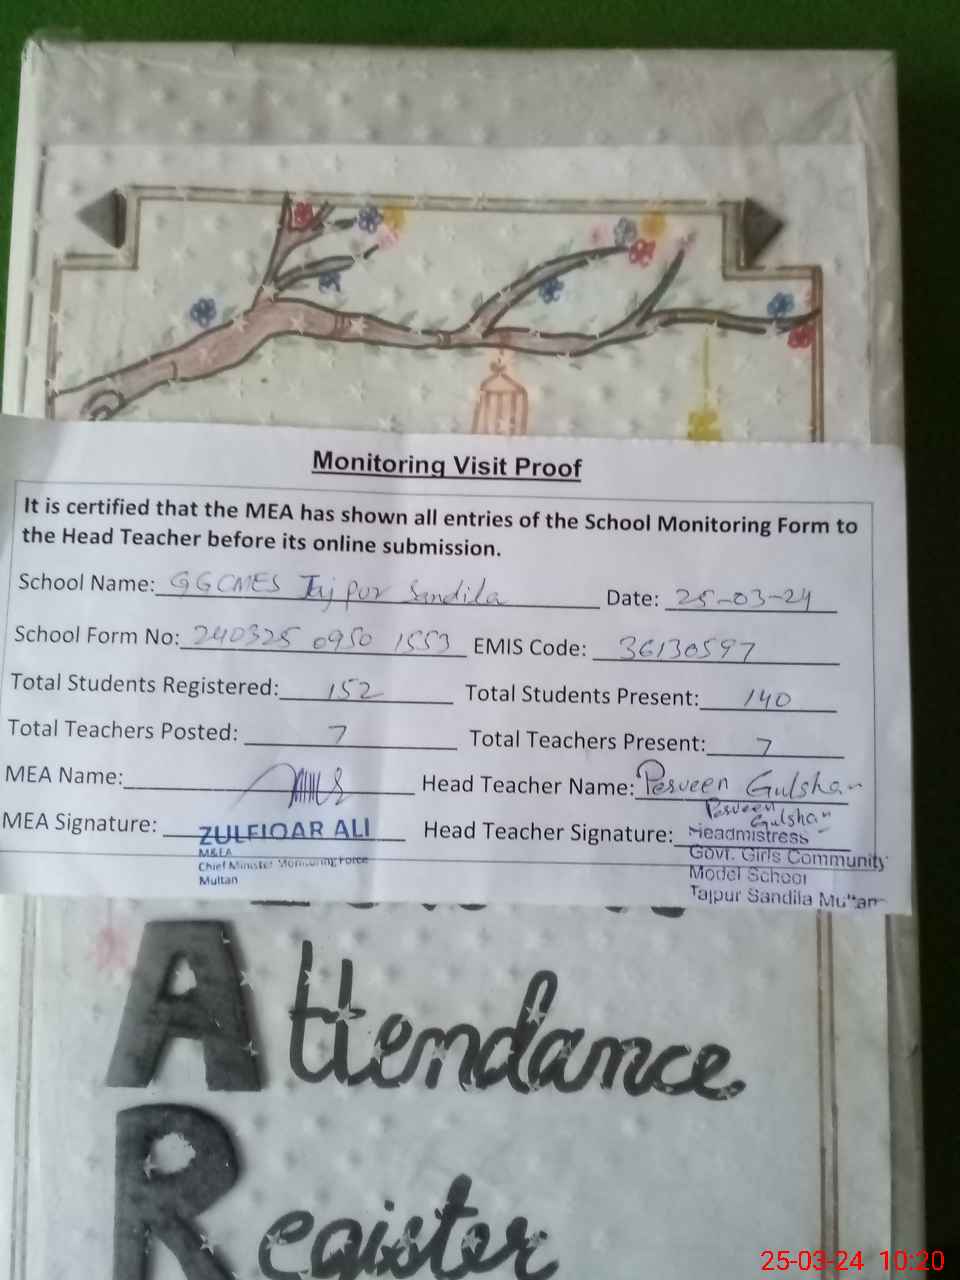 Monitoring Visit Proof
It is certified that the MEA has shown all entries of the School Monitoring Form to
the Head Teacher before its online submission.
School Name: GGCMES Tajpur Sandila Date: 25-03-24
School Form No: 240325 0950 1553 EMIS Code: 36130597
Total Students Registered: 152 Total Students Present: 140
Total Teachers Posted: 7 Total Teachers Present: 7
MEA Name: Head Teacher Name: Perveen Gulshan
MEA Signature: ZULFIQAR ALI Head Teacher Signature: Perveen Gulshan
M&EA
Chief Minister Monitoring Force
Multan
Headmistress
Govt. Girls Community
Model School
Tajpur Sandila Multan
Attendance
Register
25-03-24 10:20